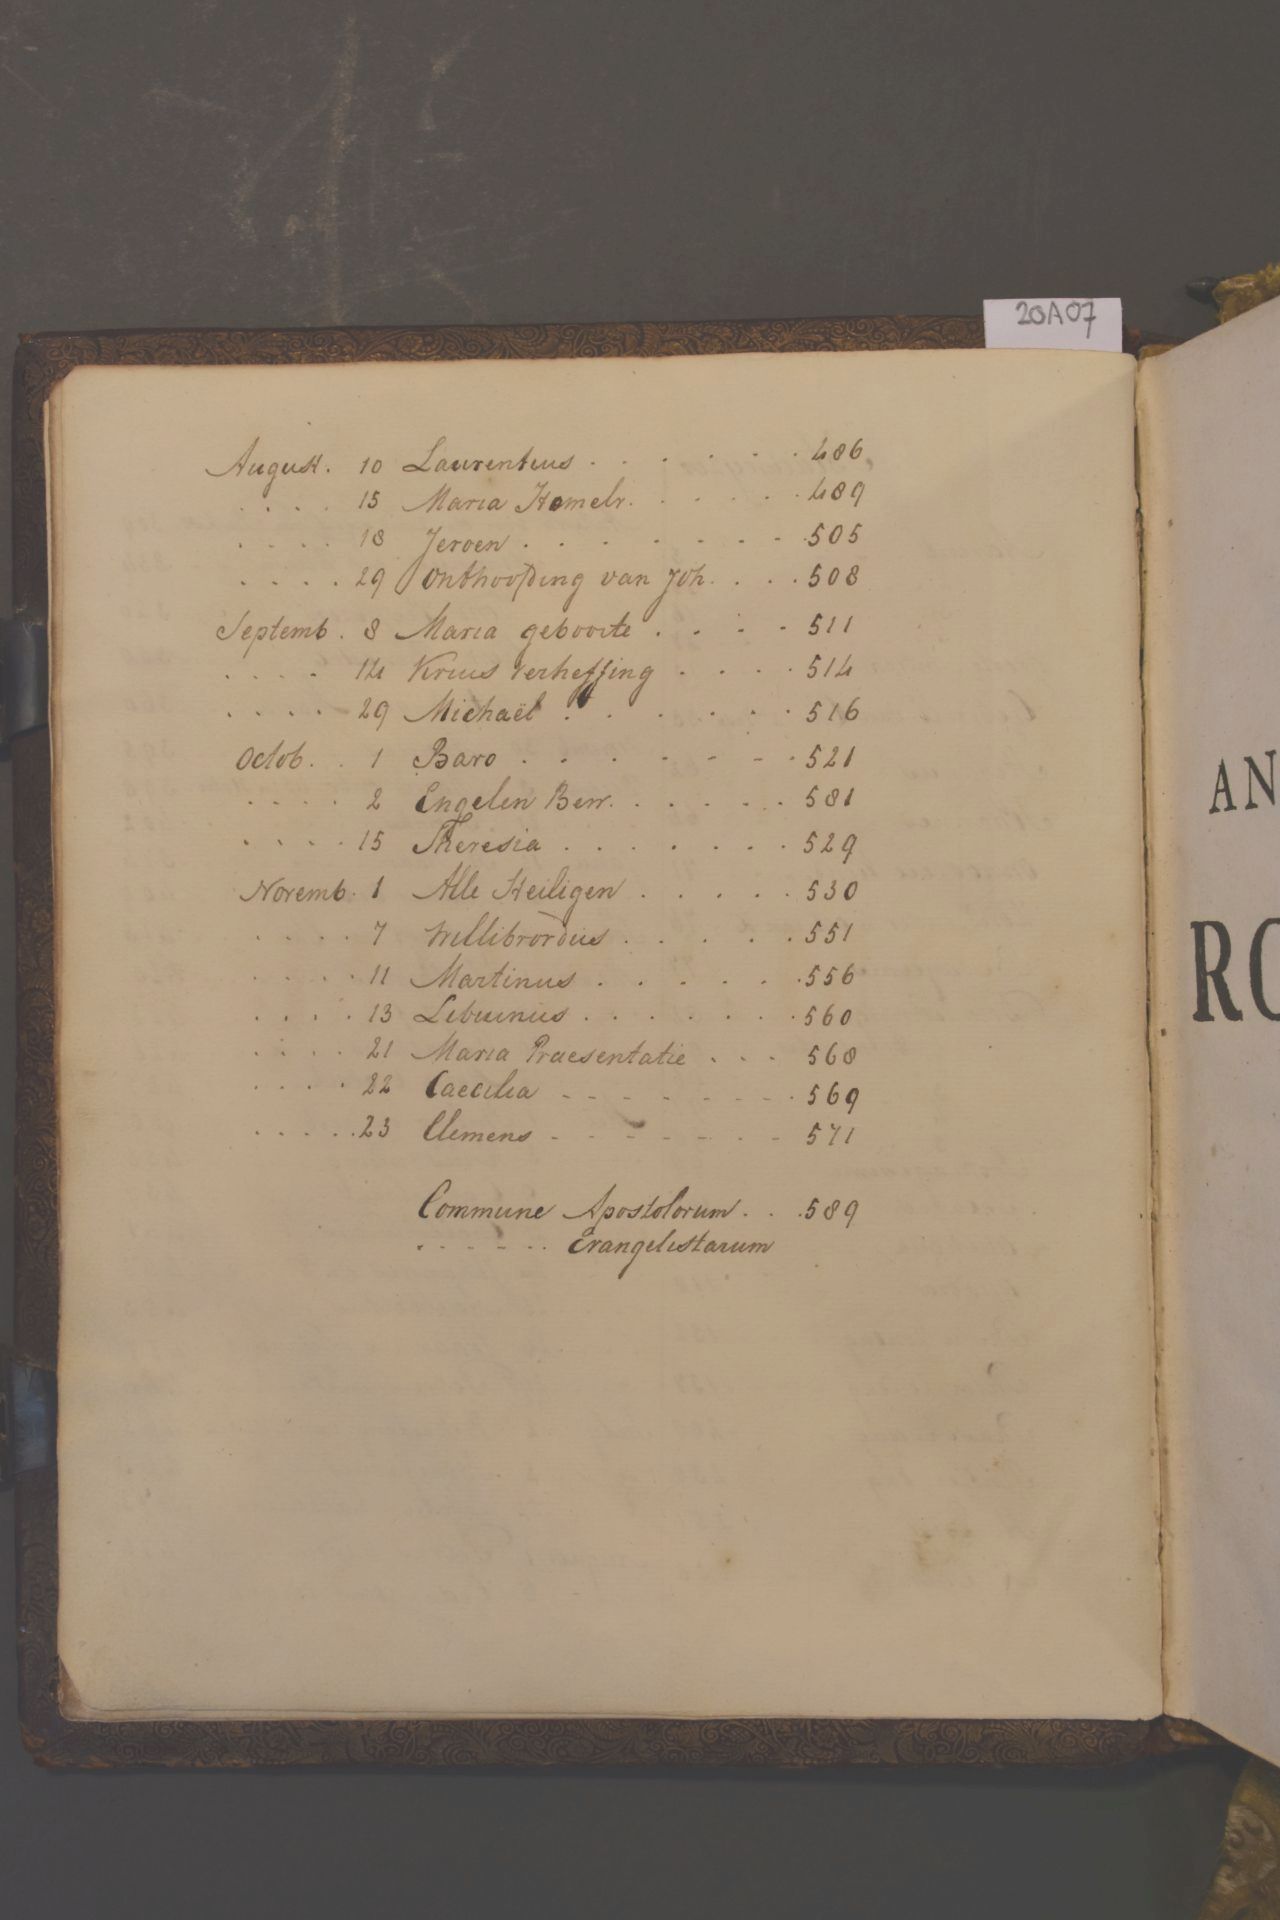 20A07
August. 10 Laurentius . . . . . . 486
. . . . 15 Maria Hemelv. . . . . . 489
. . . . 18 Jeroen . . . . . . . . 505
. . . . 29 Onthoofding van Joh. . . . 508
Septemb. 8 Maria geboorte . . . . 511
. . . . 14 Kruis verheffing . . . . 514
. . . . 29 Michaël . . . . . . . 516
Octob. . 1 Bavo . . . . . . . . 521
. . . . 2 Engelen Bew. . . . . . 581
. . . . 15 Theresia . . . . . . . 529
Novemb. 1 Alle Heiligen . . . . . 530
. . . . 7 Willibrordus . . . . . 551
. . . . 11 Martinus . . . . . . 556
. . . . 13 Lebuinus . . . . . . . 560
. . . . 21 Maria Praesentatie . . . 568
. . . . 22 Caecilia - - - - - - - - 569
. . . . . 23 Clemens - - - - - - - 571
Commune Apostolorum . . . 589
- - - - - - Evangelistarum
AN
RO